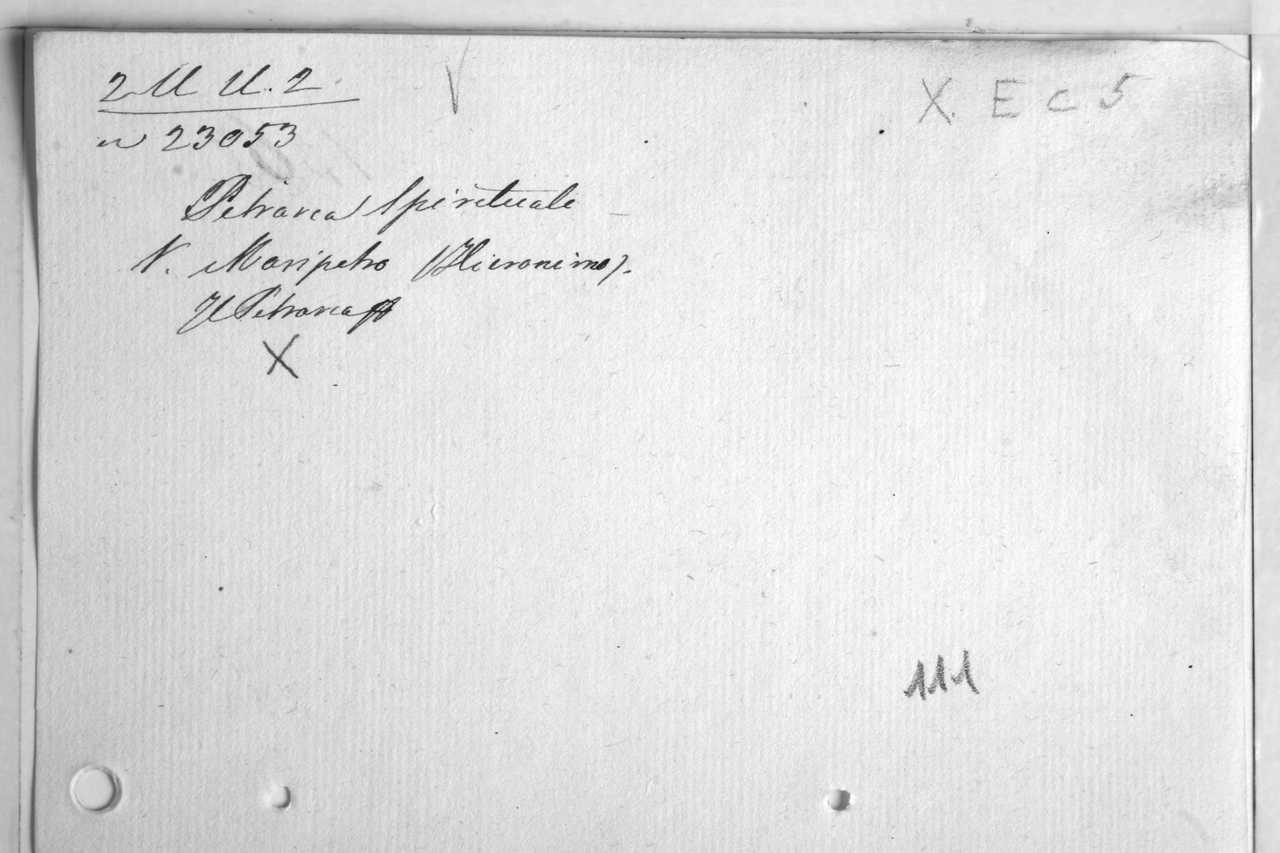 2 U U. 2.
X. E c 5
n 23053
Petrarca Spirituale
V. Maripetro (Hieronimo).
Il Petrarca
X
111